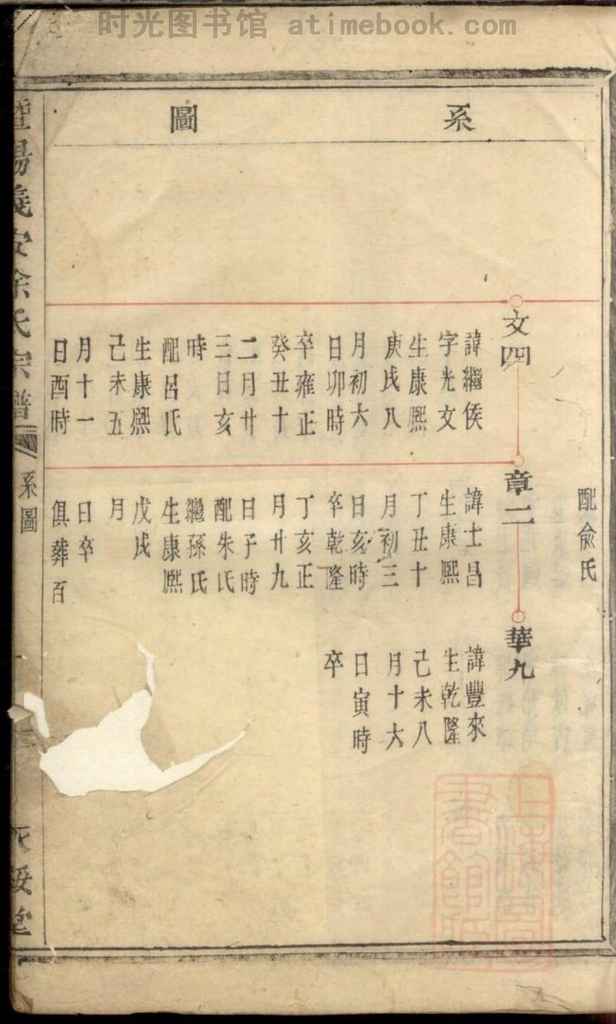 时光图书馆 atimebook.com
系圖
配俞氏
文四
諱繼侯
字光文
生康熙
庚戌八
月初六
日卯時
卒雍正
癸丑十
二月廿
三日亥
時
配呂氏
生康熙
己未五
月十一
日酉時
章二
諱士昌
生康熙
丁丑十
月初三
日亥時
卒乾隆
丁亥正
月廿九
日子時
配朱氏
繼孫氏
生康熙
戊戌
月
日卒
俱葬百
華九
諱豐來
生乾隆
己未八
月十六
日寅時
卒
暨陽義安徐氏宗譜
系圖